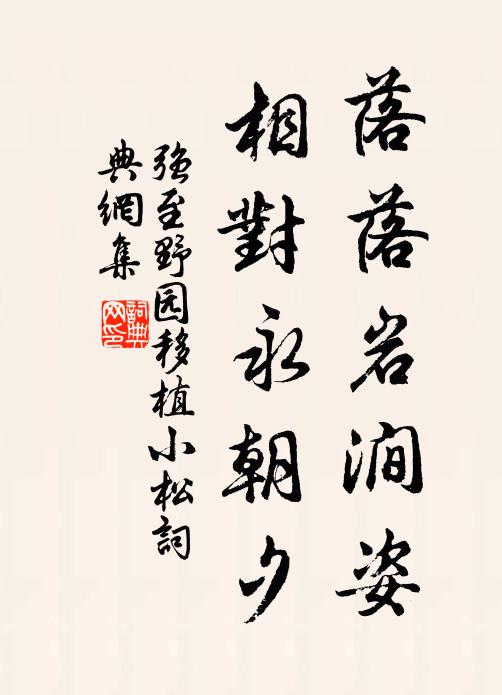 落落岩澗姿
相對永朝夕
強至野园移植小松詞
典網集
詞典網印